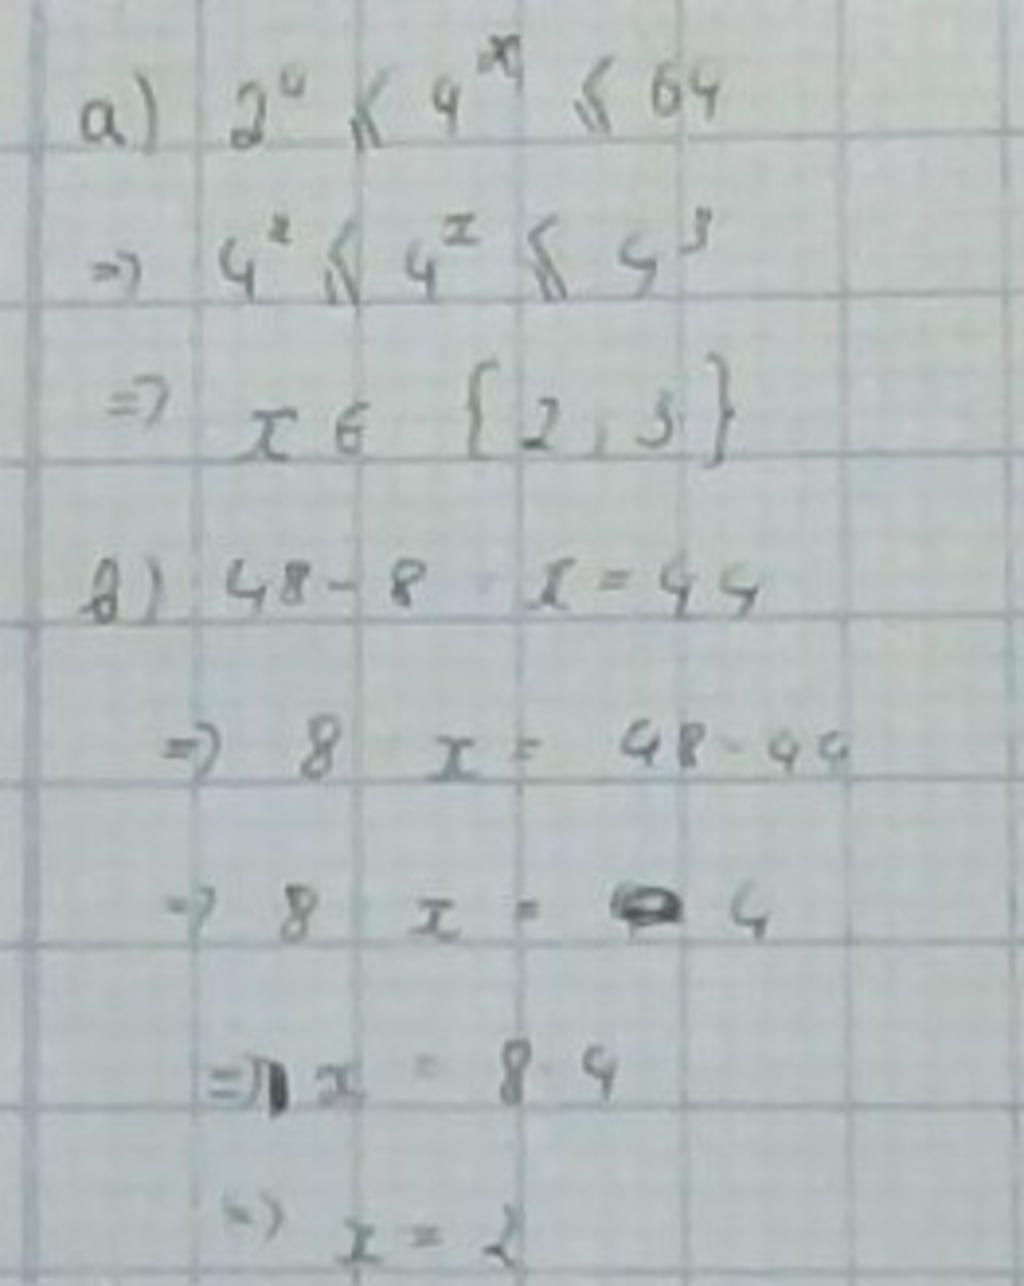 a) 2⁴ ⩽ 4ˣ ⩽ 64
=> 4² ⩽ 4ˣ ⩽ 4³
=> x ∈ {2, 3}
b) 48 - 8 x = 44
=> 8 x = 48 - 44
=> 8 x = 4
=> x = 8 4
=> x = 2